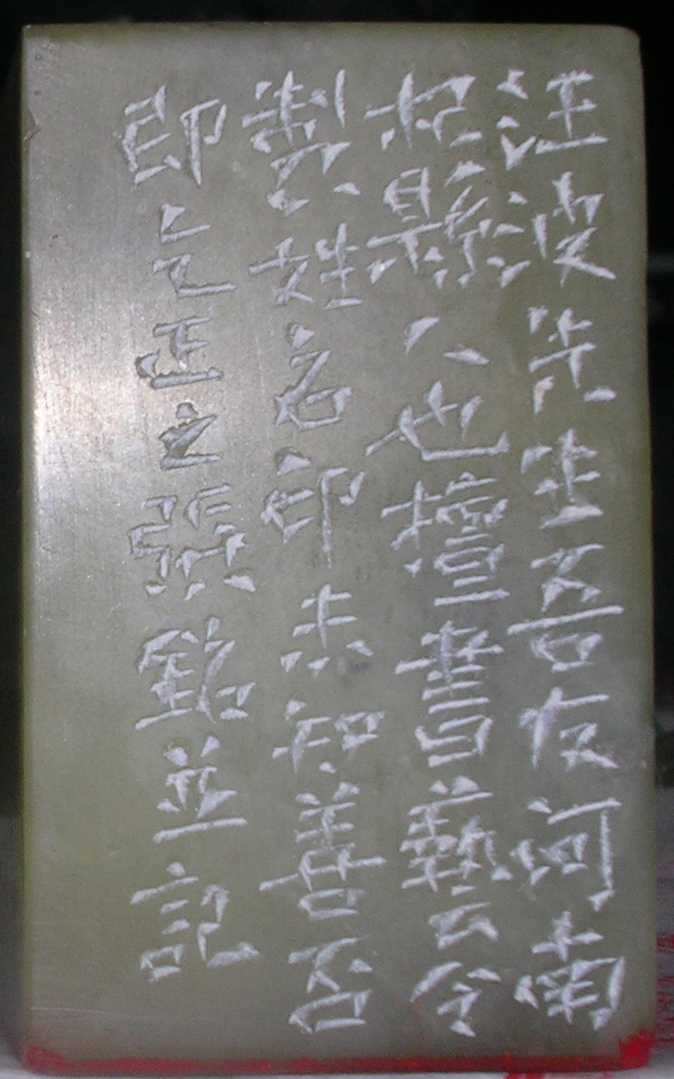 汪波先生吾友河南
杞縣人也擅書藝今
製姓名印未知善否
即乞正之張銘並記